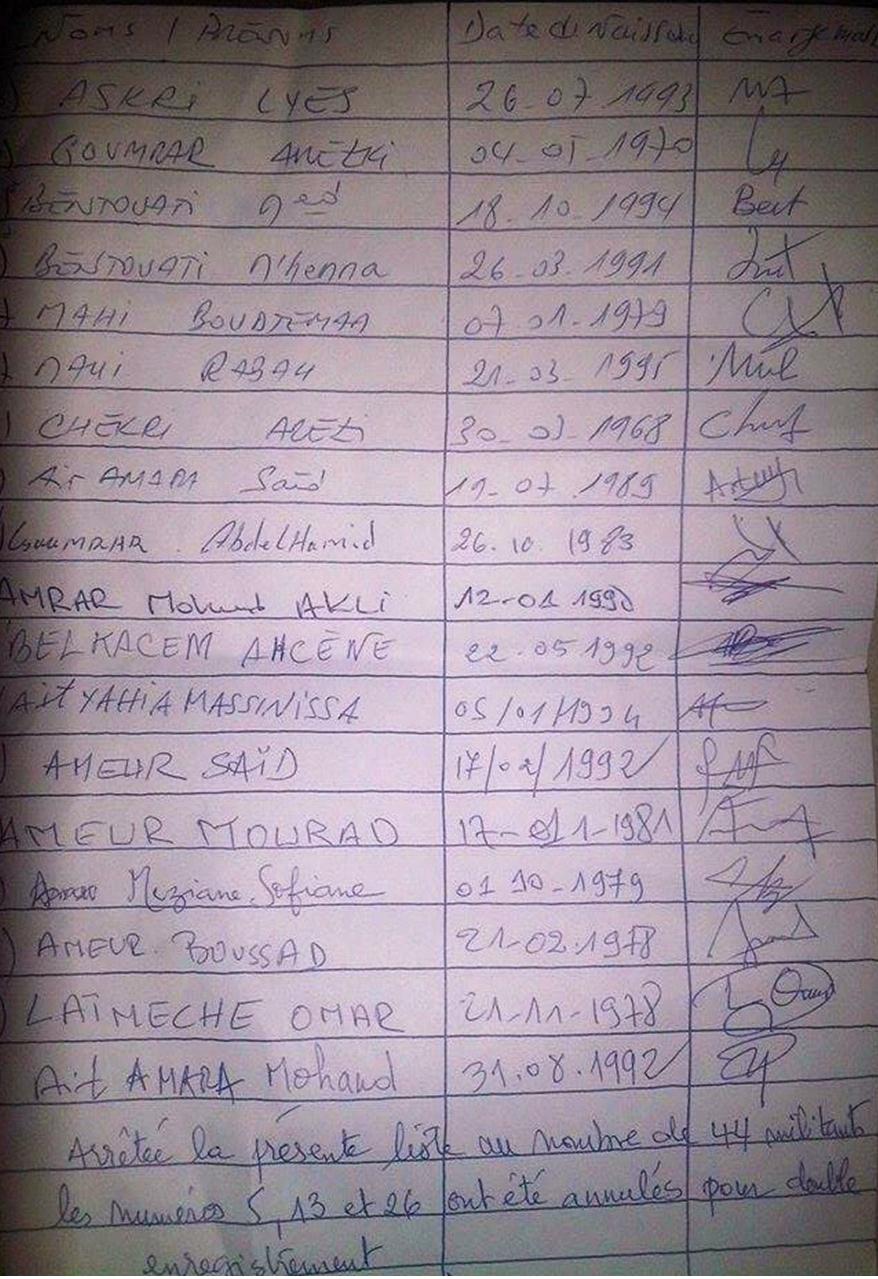 Noms / Prénoms Date de Naissance Emargement
ASKRI LYES 26-07-1993
GOUMRAR AREZKI 04-05-1970
BENTOUATI Med 18-10-1994 Bent
BENTOUATI M'henna 26-03-1991
MAHI BOUDJEMAA 07-01-1979
MAHI RABAH 21-03-1995
CHEKRI AREZKI 30-03-1968
Ait AMARA Said 19-07-1989
GOUMRAR AbdelHamid 26.10.1983
AMRAR Mohand AKLI 12-01 1990
BELKACEM AHCÈNE 22.05 1992
Ait YAHIA MASSINISSA 05/01/1994
AMEUR SAÏD 17/02/1992
AMEUR MOURAD 17-01-1981
Meziane Sofiane 01 10-1979
AMEUR BOUSSAD 21-02.1978
LAÏMECHE OMAR 21-11-1978
Ait AMARA Mohand 31.08.1992
Arrêtée la présente liste au nombre de 44 militants
les numéros 5, 13 et 26 ont été annulés pour double
enregistrement